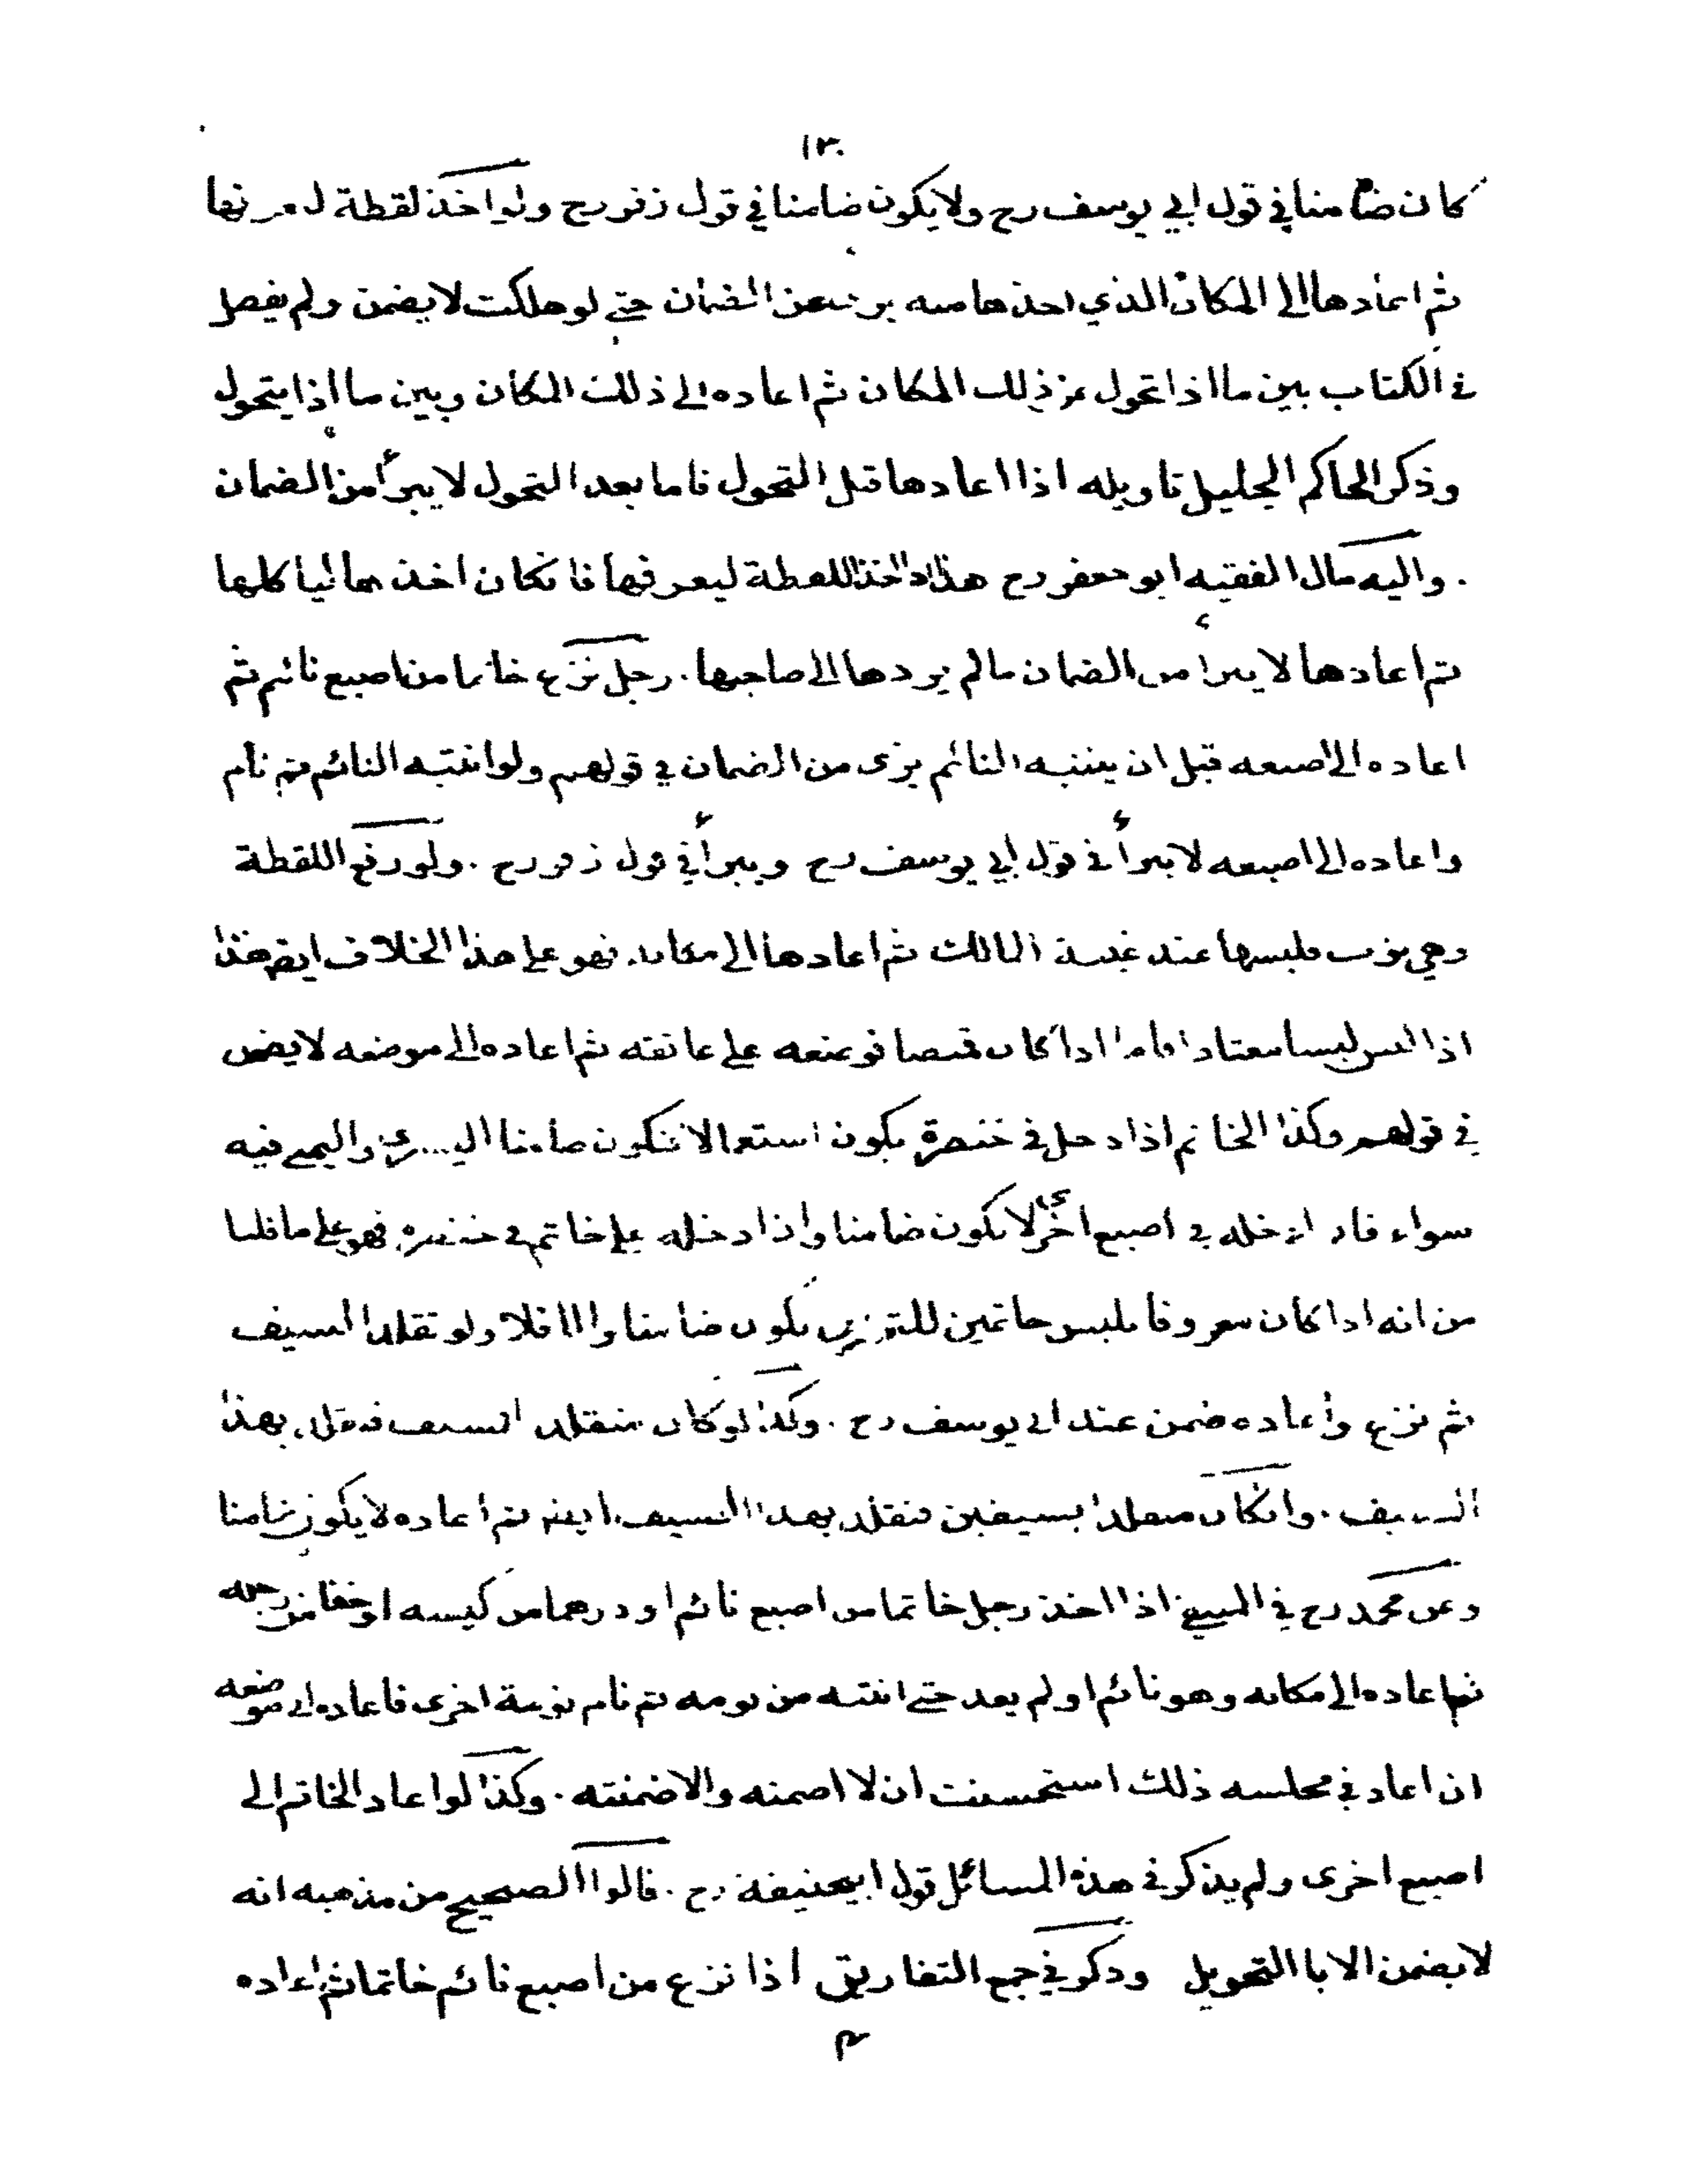 ١٣٠
كان ضامنا في قول ابي يوسف رح ولا يكون ضامنا في قول زفر رح ولو اخذ لقطة ليعرفها
ثم اعادها الى المكان الذي اخذها منه برئ عن الضمان حتى لو هلكت لا يضمن ولم يفصل
في الكتاب بين ما اذا تحول عن ذلك المكان ثم اعاده الى ذلك المكان وبين ما اذا يتحول
وذكر الحاكم الجليل تاويله اذا اعادها قبل التحول فاما بعد التحول لا يبرأ من الضمان
. واليه مال الفقيه ابو جعفر رح هذا اذا اخذ اللقطة ليعرفها فانكان اخذها لياكلها
ثم اعادها لا يبرا من الضمان ما لم يردها الى صاحبها . رجل نزع خاتما من اصبع نائم ثم
اعاده الى اصبعه قبل ان ينتبه النائم برى من الضمان في قولهم ولو انتبه النائم ثم نام
واعاده الى اصبعه لا يبرأ في قول ابي يوسف رح ويبرأ في قول زفر رح . ولو رفع اللقطة
وهي ثوب فلبسها عند غيبة المالك ثم اعادها الى مكانه فهو على هذا الخلاف ايضا هذا
اذا لبس لبسا معتادا فاما اذا كان قميصا فوضعه على عاتقه ثم اعاده الى موضعه لا يضمن
في قولهم وكذا الخاتم اذا دخل في خنصره يكون استعمالا فيكون ضامنا اليسرى واليمنى فيه
سواء فان ادخله في اصبع اخرى لا يكون ضامنا واذا دخله على خاتم في خنصره فهو على ما قلنا
من انه اذا كان معروفا بلبس خاتمين للتزين يكون ضامنا والا فلا ولو تقلد السيف
ثم نزع واعاده ضمن عند ابي يوسف رح . وكذا لو كان متقلد السيف فتقلد بهذا
السيف . وانكان متقلدا بسيفين فتقلد بهذا السيف ايضا ثم اعاده لا يكون ضامنا
وعن محمد رح في اذا اخذ رجل خاتما من اصبع نائم او درهما من كيسه او خفا من رجله
ثم اعاده الى مكانه وهو نائم او لم يعد حتى انتبه من نومه ثم نام نومة اخرى فاعاده الى موضعه
ان اعاد في مجلسه ذلك استحسنت ان لا اضمنه والا ضمنته . وكذا لو اعاد الخاتم الى
اصبع اخرى ولم يذكر في هذه المسائل قول ابيحنيفة رح . قالوا الصحيح من مذهبه انه
لا يضمن الا بالتحويل وذكر في جمع التفاريق اذا نزع من اصبع نائم خاتما ثم اعاده